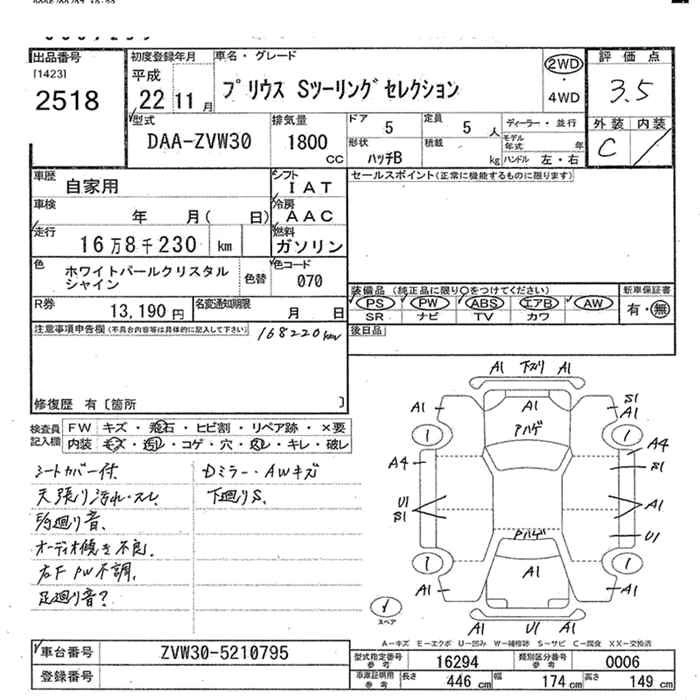 出品番号
[1423]
2518
初度登録年月
平成
22 11月
車名・グレード
プリウス Sツーリングセレクション
2WD
・
4WD
評価点
3.5
外装 内装
C
型式
DAA-ZVW30
排気量
1800
CC
ドア
5
定員
5 人
形状
ハッチB
積載
kg
ディーラー・並行
モデル年式 年
ハンドル 左・右
車歴
自家用
シフト
IAT
車検
年 月( 日)
冷房
AAC
走行
16万8千230 km
燃料
ガソリン
色
ホワイトパールクリスタル
シャイン
色替
色コード
070
R券
13,190円
名変通知期限
月 日
セールスポイント(正常に機能するものに限ります)
装備品 (純正品に限り○をつけてください)
PS PW ABS エアB AW
SR ナビ TV カワ
新車保証書
有・無
注意事項申告欄(不具合内容等は具体的に記入して下さい)
168220km
後日品
修復歴 有 [箇所 ]
検査員
記入欄
FW キズ・飛石・ヒビ割・リペア跡・×要
内装 キズ・汚レ・コゲ・穴・スレ・キレ・破レ
シートカバー付
天張り汚れ・スレ
Dミラー・AWキズ
下廻りS.
オーディオ傾き不良.
右F PW不調.
足廻り音?
A1 下スリ A1
A1
A1
S1
A1
アハゲ
1
1
A4
A4
S1
U1
S1
A1
U1
アハゲ
A1
1
1
A1
A1
A1 U1 A1
スペア
A-キズ E-エクボ U-凹み W-補修跡 S-サビ C-腐食 XX-交換済
車台番号
ZVW30-5210795
登録番号
型式指定番号
参考
16294
類別区分番号
参考
0006
車庫証明用
参考
長さ
446 cm
幅
174 cm
高さ
149 cm